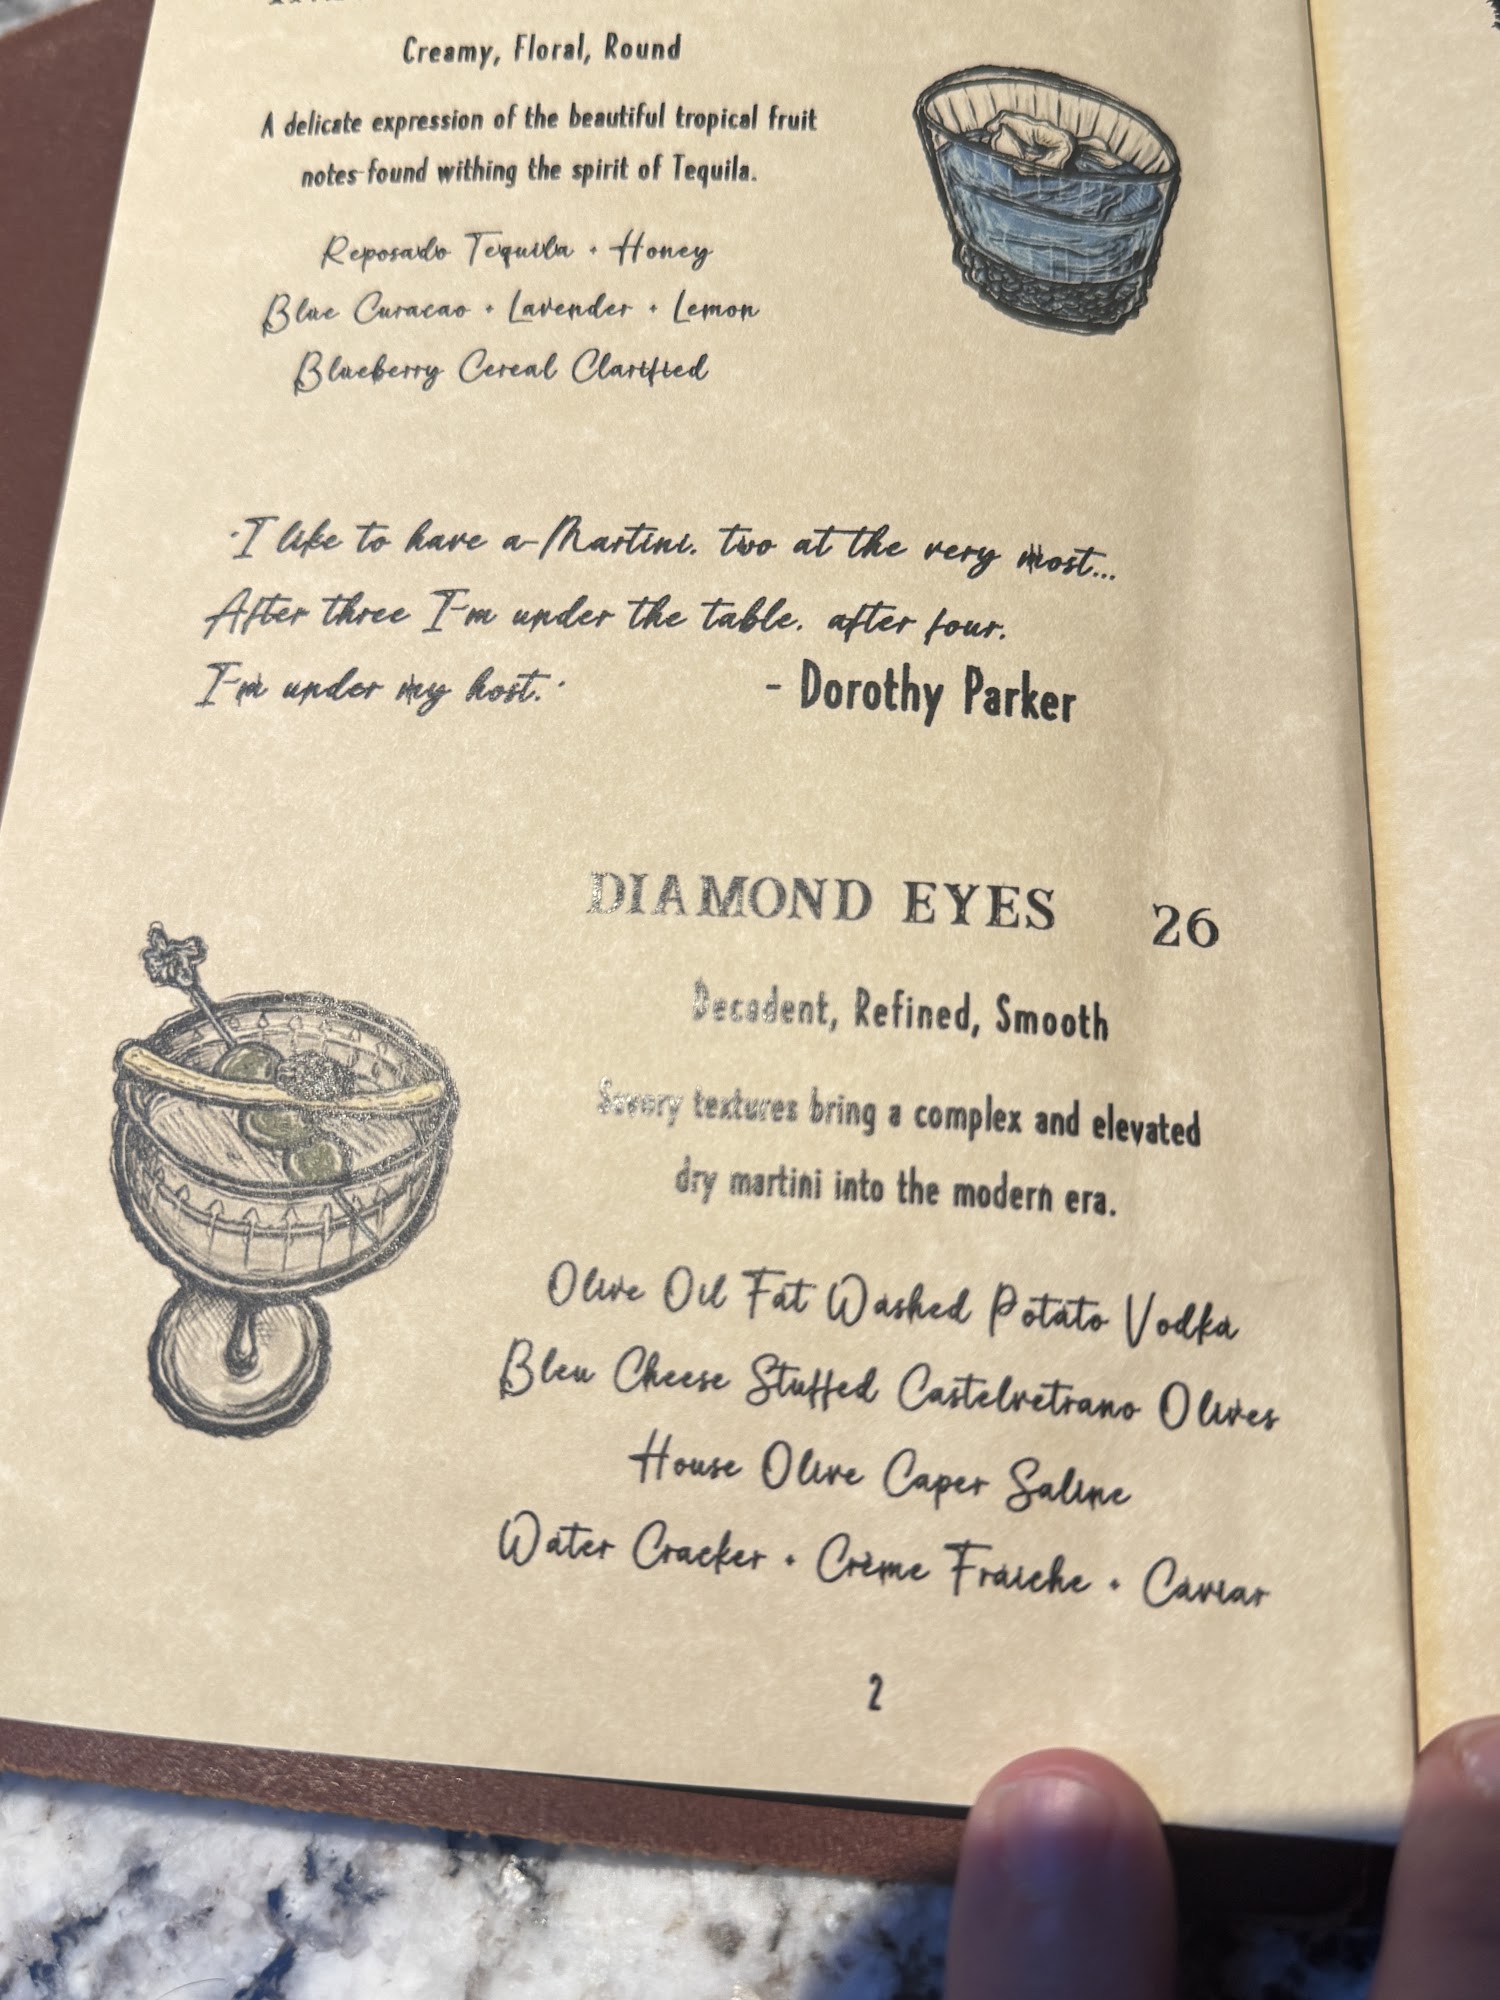 Creamy, Floral, Round
A delicate expression of the beautiful tropical fruit
notes found withing the spirit of Tequila.
Reposado Tequila • Honey
Blue Curacao • Lavender • Lemon
Blueberry Cereal Clarified
"I like to have a Martini, two at the very most...
After three I'm under the table, after four,
I'm under my host."
- Dorothy Parker
DIAMOND EYES 26
Decadent, Refined, Smooth
Savory textures bring a complex and elevated
dry martini into the modern era.
Olive Oil Fat Washed Potato Vodka
Bleu Cheese Stuffed Castelvetrano Olives
House Olive Caper Saline
Water Cracker • Crème Fraiche • Caviar
2